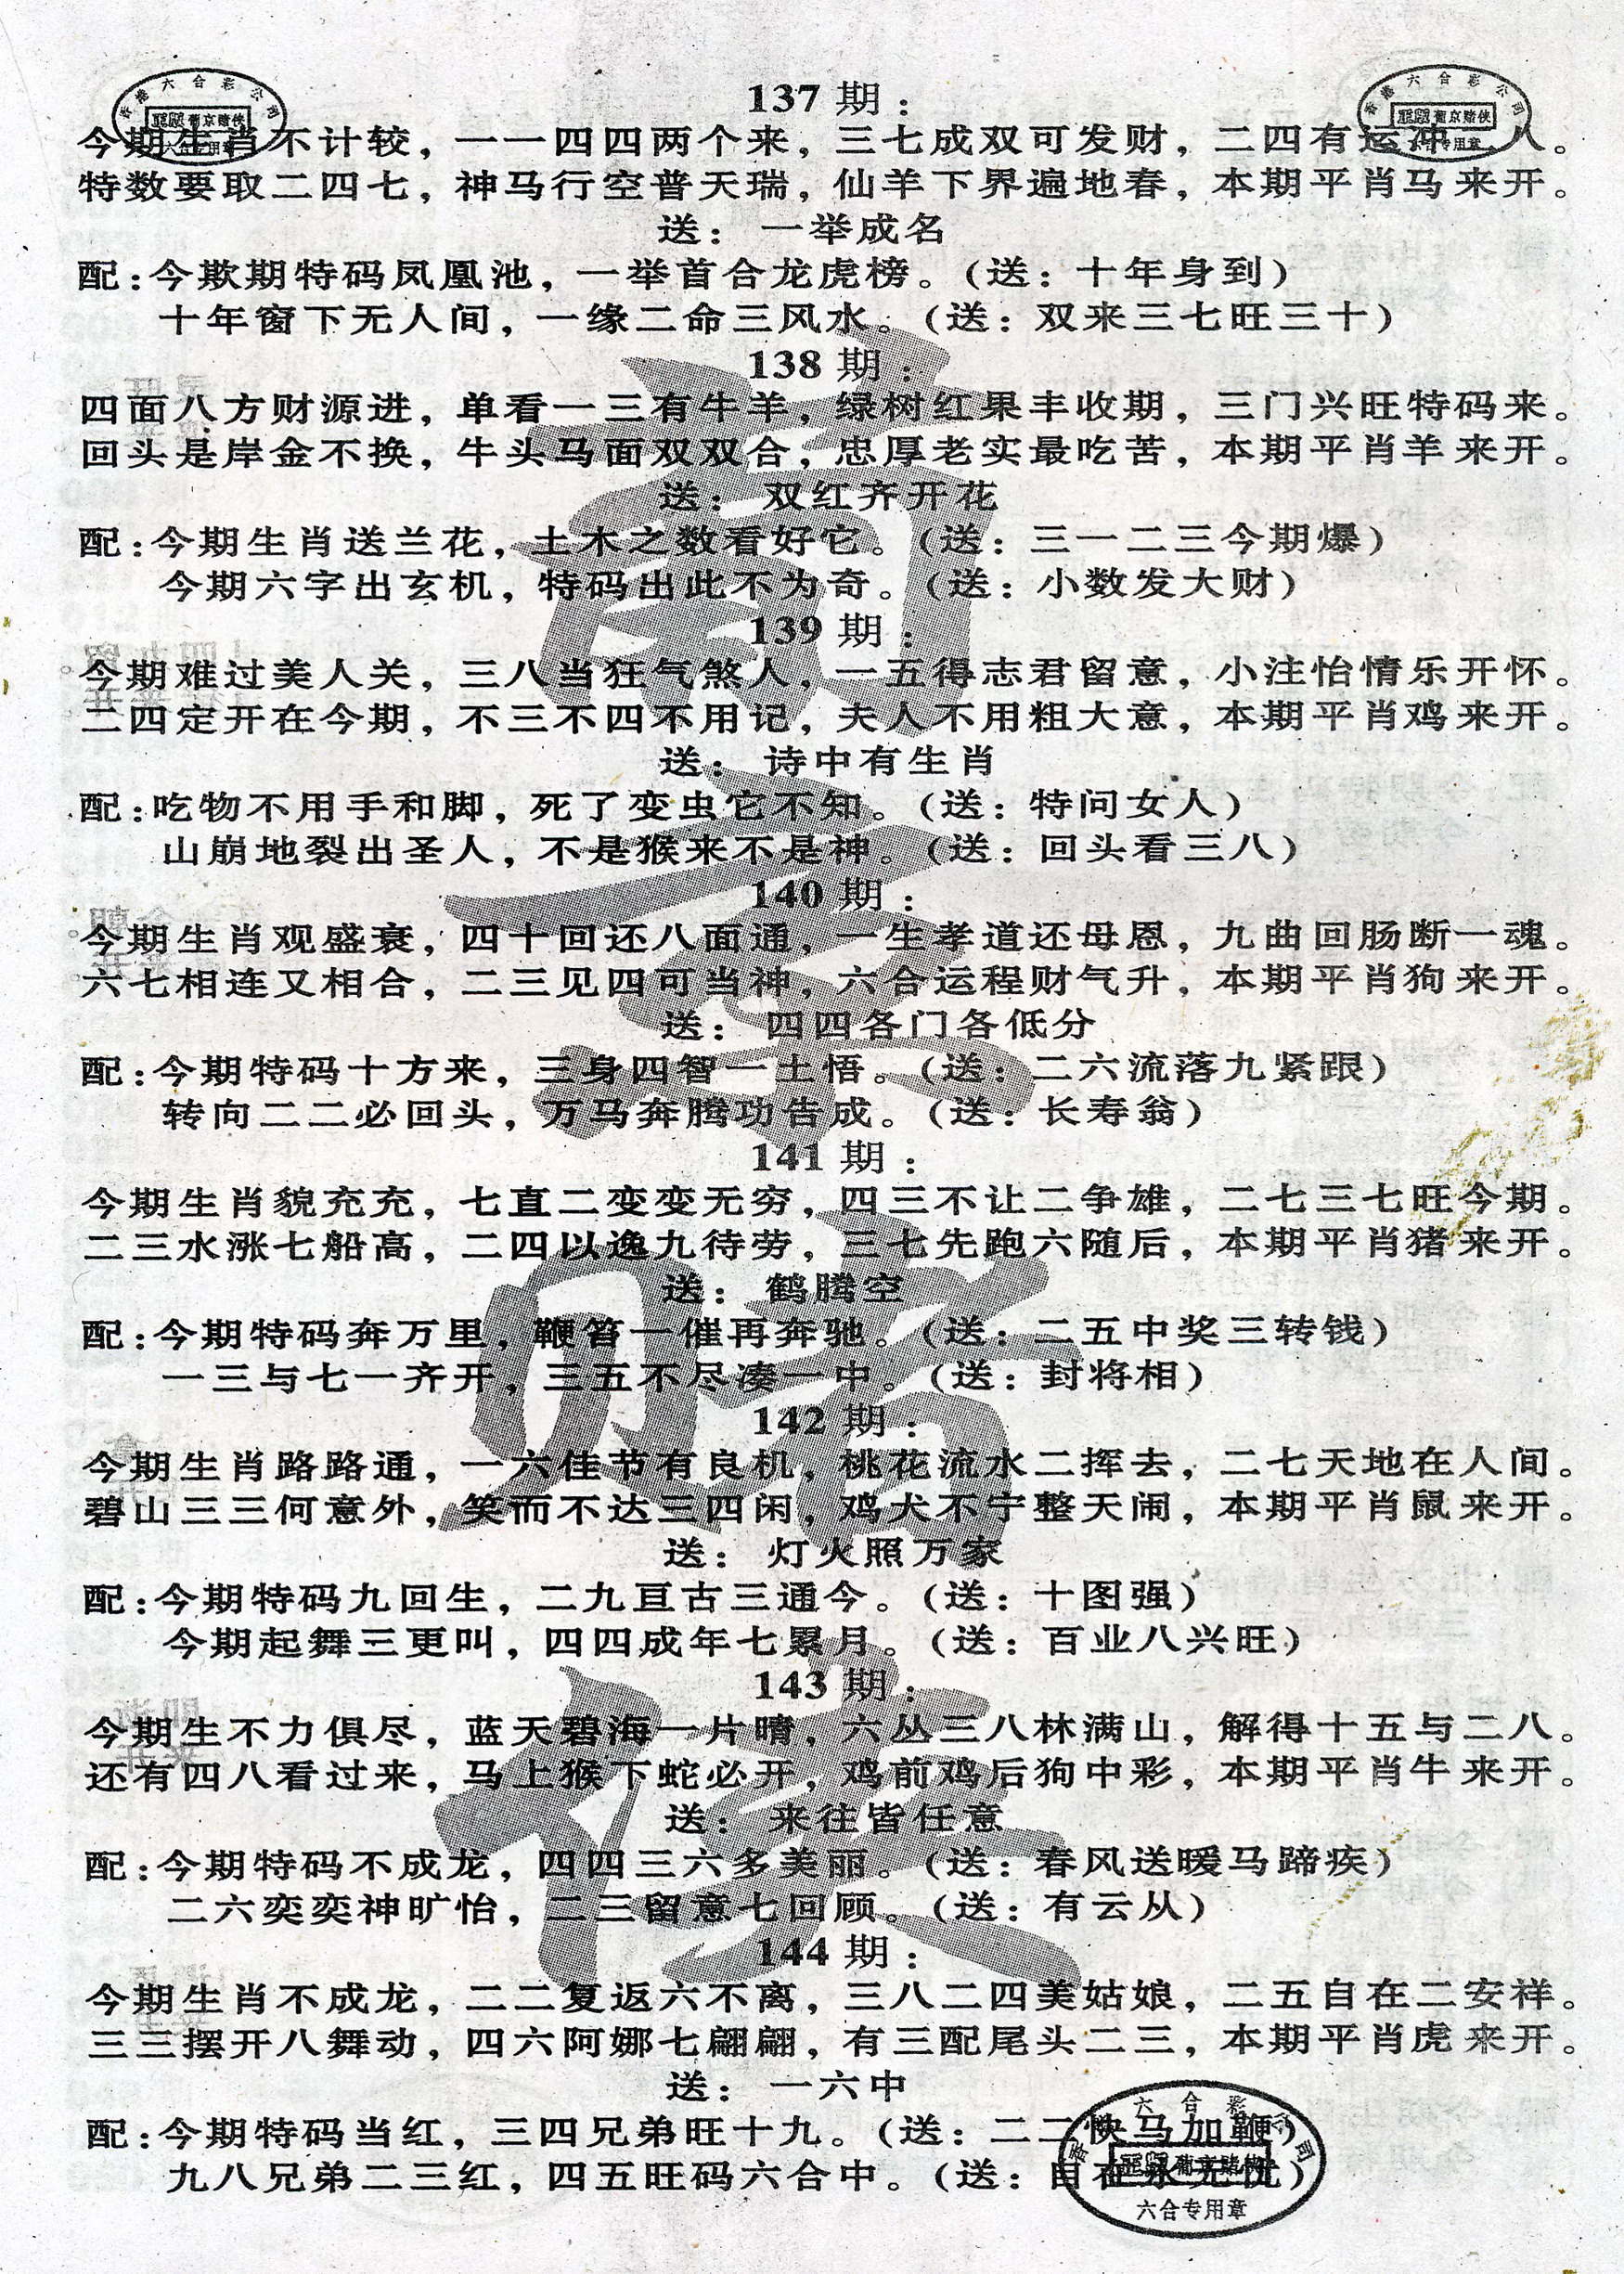 香港六合彩公司
葡京赌侠
六合专用章
香港六合彩公司
葡京赌侠
六合专用章
137 期：
今期生肖不计较，一一四四两个来，三七成双可发财，二四有运冲二人。
特数要取二四七，神马行空普天瑞，仙羊下界遍地春，本期平肖马来开。
送： 一举成名
配：今欺期特码凤凰池，一举首合龙虎榜。（送：十年身到）
十年窗下无人间，一缘二命三风水。（送：双来三七旺三十）
138 期：
四面八方财源进，单看一三有牛羊，绿树红果丰收期，三门兴旺特码来。
回头是岸金不换，牛头马面双双合，忠厚老实最吃苦，本期平肖羊来开。
送： 双红齐开花
配：今期生肖送兰花，土木之数看好它。（送：三一二三今期爆）
今期六字出玄机，特码出此不为奇。（送：小数发大财）
139 期：
今期难过美人关，三八当狂气煞人，一五得志君留意，小注怡情乐开怀。
二四定开在今期，不三不四不用记，夫人不用粗大意，本期平肖鸡来开。
送： 诗中有生肖
配：吃物不用手和脚，死了变虫它不知。（送：特问女人）
山崩地裂出圣人，不是猴来不是神。（送：回头看三八）
140 期：
今期生肖观盛衰，四十回还八面通，一生孝道还母恩，九曲回肠断一魂。
六七相连又相合，二三见四可当神，六合运程财气升，本期平肖狗来开。
送： 四四各门各低分
配：今期特码十方来，三身四智一土悟。（送：二六流落九紧跟）
转向二二必回头，万马奔腾功告成。（送：长寿翁）
141 期：
今期生肖貌充充，七直二变变无穷，四三不让二争雄，二七三七旺今期。
二三水涨七船高，二四以逸九待劳，三七先跑六随后，本期平肖猪来开。
送： 鹤腾空
配：今期特码奔万里，鞭笞一催再奔驰。（送：二五中奖三转钱）
一三与七一齐开，三五不尽凑一中。（送：封将相）
142 期：
今期生肖路路通，一六佳节有良机，桃花流水二挥去，二七天地在人间。
碧山三三何意外，笑而不达三四闲，鸡犬不宁整天闹，本期平肖鼠来开。
送： 灯火照万家
配：今期特码九回生，二九亘古三通今。（送：十图强）
今期起舞三更叫，四四成年七累月。（送：百业八兴旺）
143 期：
今期生不力俱尽，蓝天碧海一片晴，六丛三八林满山，解得十五与二八。
还有四八看过来，马上猴下蛇必开，鸡前鸡后狗中彩，本期平肖牛来开。
送： 来往皆任意
配：今期特码不成龙，四四三六多美丽。（送：春风送暖马蹄疾）
二六奕奕神旷怡，二三留意七回顾。（送：有云从）
144 期：
今期生肖不成龙，二二复返六不离，三八二四美姑娘，二五自在二安祥。
三三摆开八舞动，四六阿娜七翩翩，有三配尾头二三，本期平肖虎来开。
送： 一六中
配：今期特码当红，三四兄弟旺十九。（送：二二快马加鞭）
九八兄弟二三红，四五旺码六合中。（送：自在永无忧）
香港六合彩公司
葡京赌侠
六合专用章